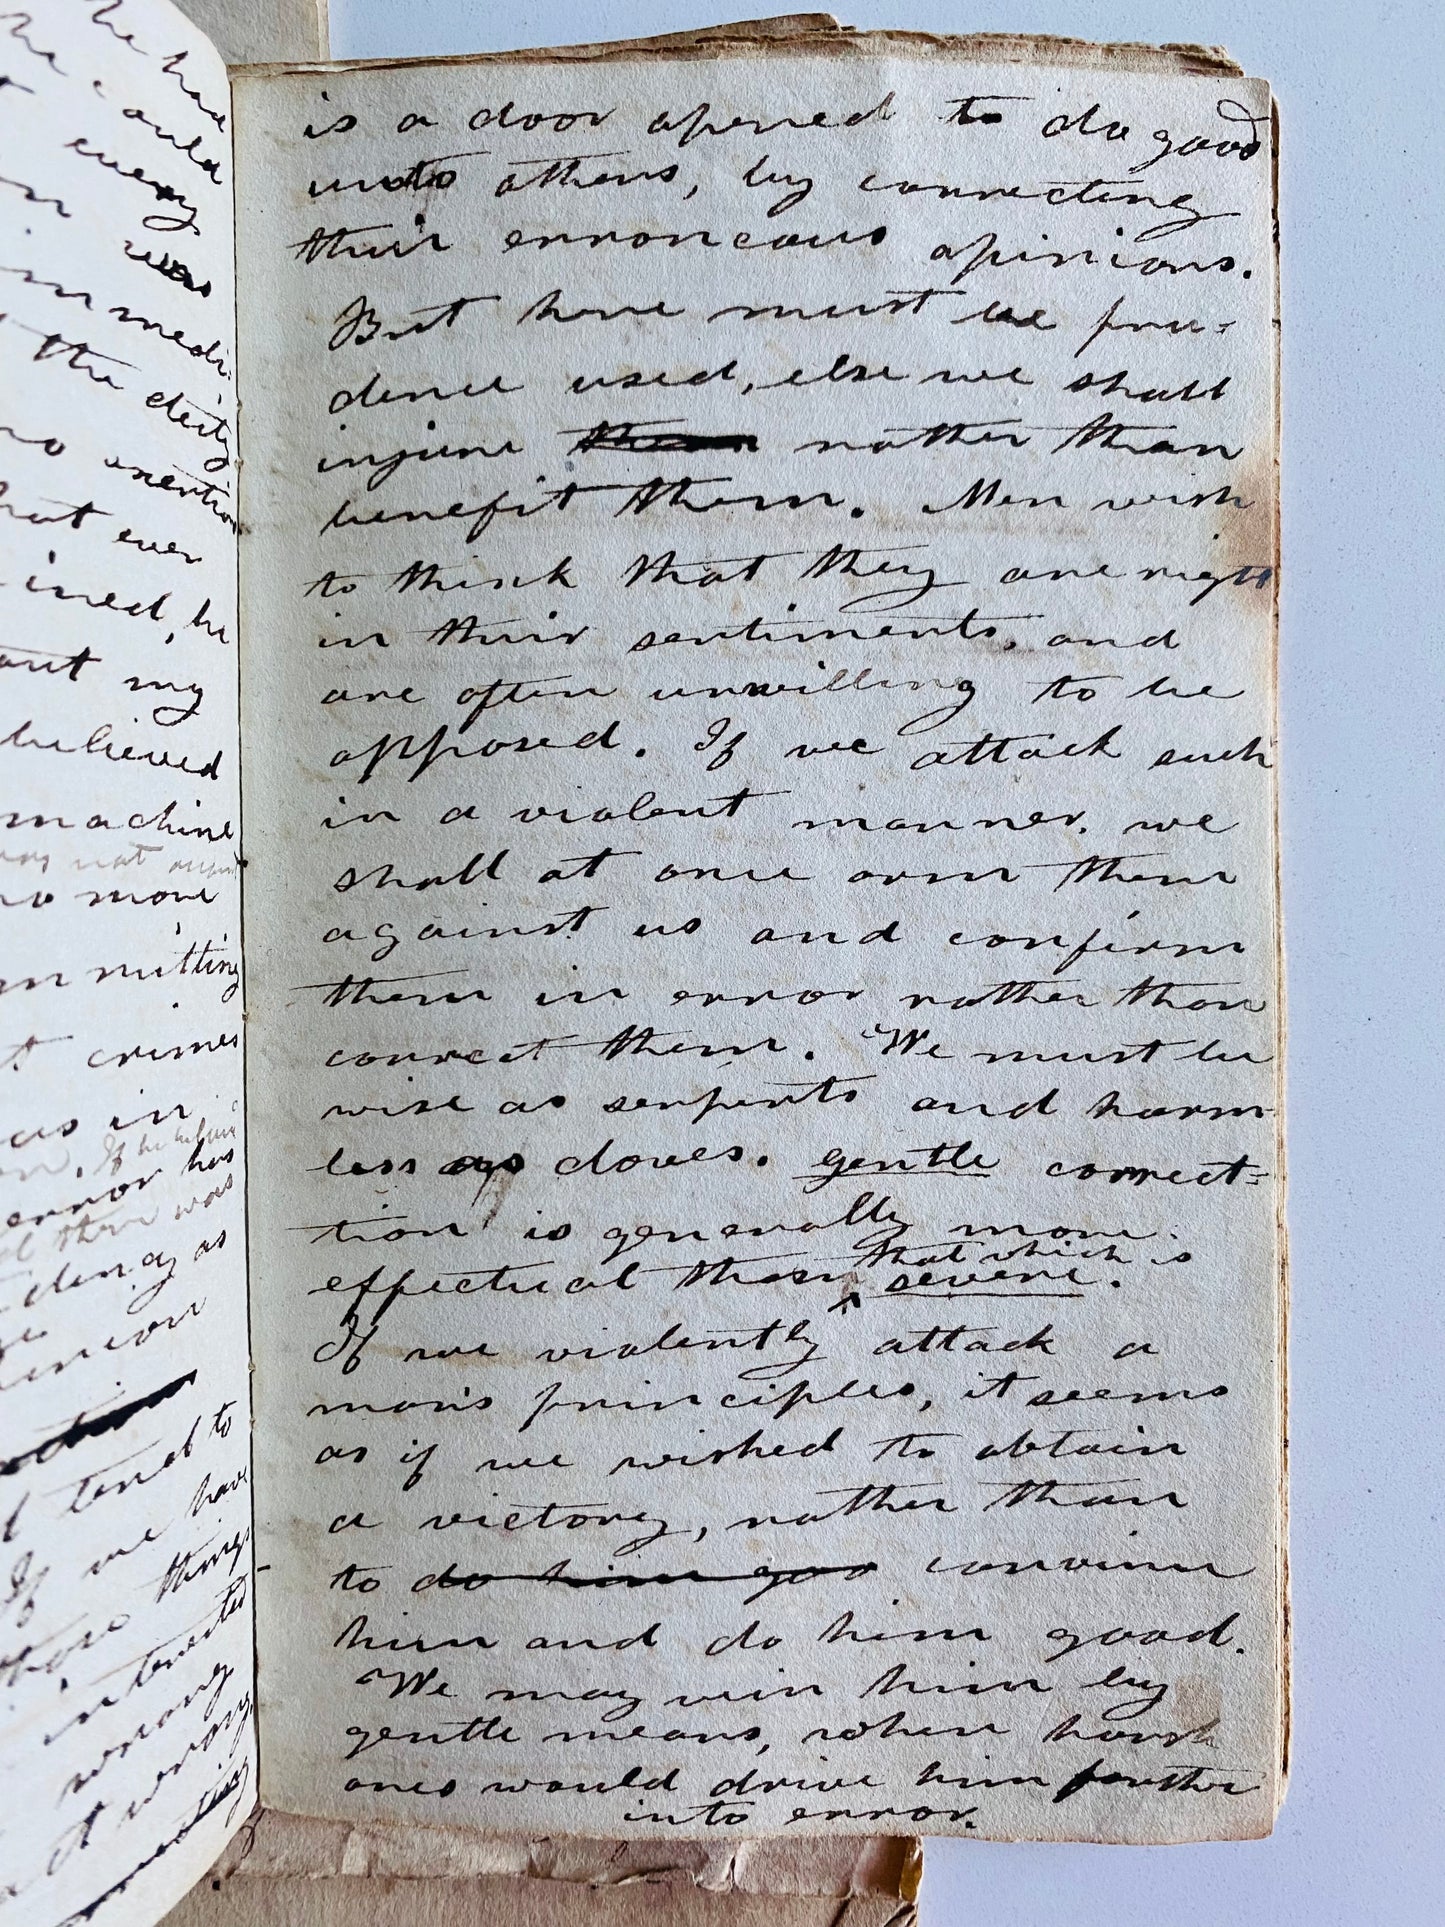 he had
he could
every
was
immedi-
the deity
no exertion
hat ever
ined, he
out my
believed
machine
no more
mmitting
crimes
as in
error has
there was
dency as
tend to
If we have
those things
interested
wrong
is a door opened to do good
unto others, by correcting
their erroneous opinions.
But here must be pru=
dence used, else we shall
injure them rather than
benefit them. Men wish
to think that they are right
in their sentiments, and
are often unwilling to be
opposed. If we attack such
in a violent manner, we
shall at once arm them
against us and confirm
them in error rather than
correct them. We must be
wise as serpents and harm-
less as doves. gentle correct=
tion is generally more
that which is
effectual than severe.
If we violently attack a
man's principles, it seems
as if we wished to obtain
a victory, rather than
to do him goo convince
him and do him good.
We may win him by
gentle means, when harsh
ones would drive him farther
into error.